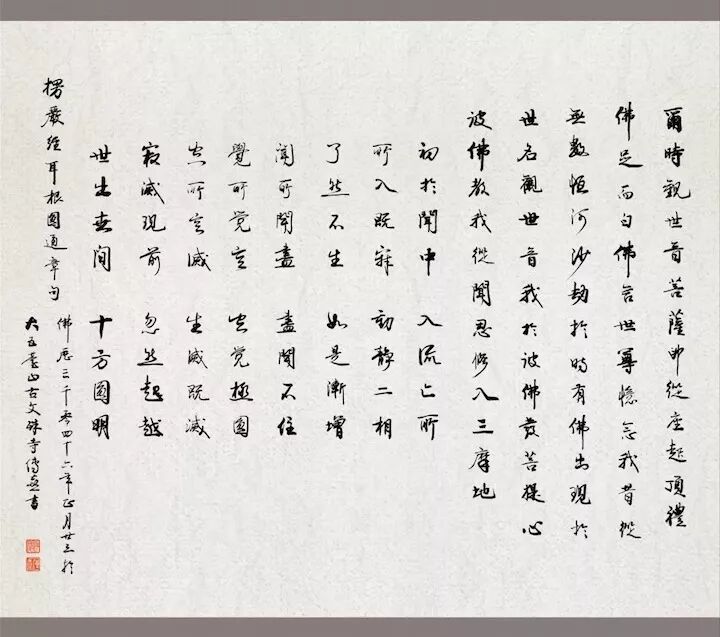 爾時觀世音菩薩即從座起頂禮
佛足而白佛言世尊憶念我昔從
無數恒河沙劫於時有佛出現於
世名觀世音我於彼佛發菩提心
彼佛教我從聞思修入三摩地
初於聞中 入流亡所
所入既寂 動靜二相
了然不生 如是漸增
聞所聞盡 盡聞不住
覺所覺空 空覺極圓
空所空滅 生滅既滅
寂滅現前 忽然超越
世出世間 十方圓明
楞嚴經耳根圓通章句
佛歷三千零四十六年正月廿三於
大五臺山古文殊寺傳書